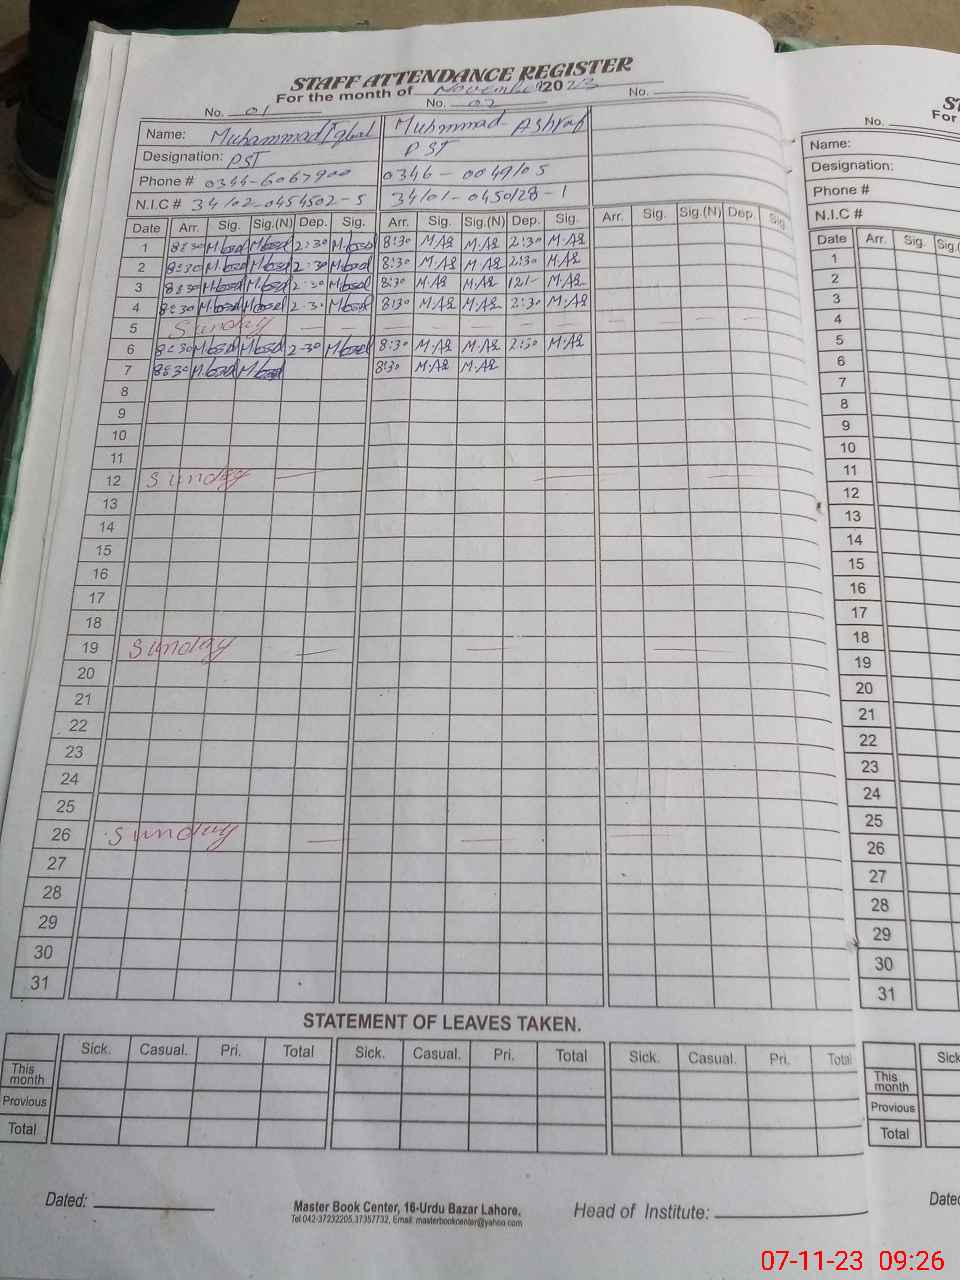 STAFF ATTENDANCE REGISTER
For the month of November 2023
No. 01 No. 02 No.
Name: Muhammad Iqbal Muhmmad Ashraf
Designation: PST PST
Phone # 0344-6067900 0346-0049105
N.I.C # 34102-0454502-5 34101-0450128-1
Date Arr. Sig. Sig.(N) Dep. Sig. Arr. Sig. Sig.(N) Dep. Sig. Arr. Sig. Sig.(N) Dep. Sig.
1 8:30 2:30 8:30 2:30
2 8:30 2:30 8:30 2:30
3 8:30 2:30 8:30 12:-
4 8:30 2:30 8:30 2:30
5 Sunday — — — — — — — — —
6 8:30 2:30 8:30 2:30
7 8:30 8:30
8
9
10
11
12 Sunday — — —
13
14
15
16
17
18
19 Sunday — — —
20
21
22
23
24
25
26 Sunday — — —
27
28
29
30
31
STATEMENT OF LEAVES TAKEN.
Sick. Casual. Pri. Total Sick. Casual. Pri. Total Sick. Casual. Pri. Total
This month
Provious
Total
Dated:
Master Book Center, 16-Urdu Bazar Lahore.
Tel 042-37232205,37357732, Email: masterbookcenter@yahoo.com
Head of Institute:
ST
For
No.
Name:
Designation:
Phone #
N.I.C #
Date Arr. Sig. Sig.(
1
2
3
4
5
6
7
8
9
10
11
12
13
14
15
16
17
18
19
20
21
22
23
24
25
26
27
28
29
30
31
Sick
This month
Provious
Total
Date
07-11-23 09:26